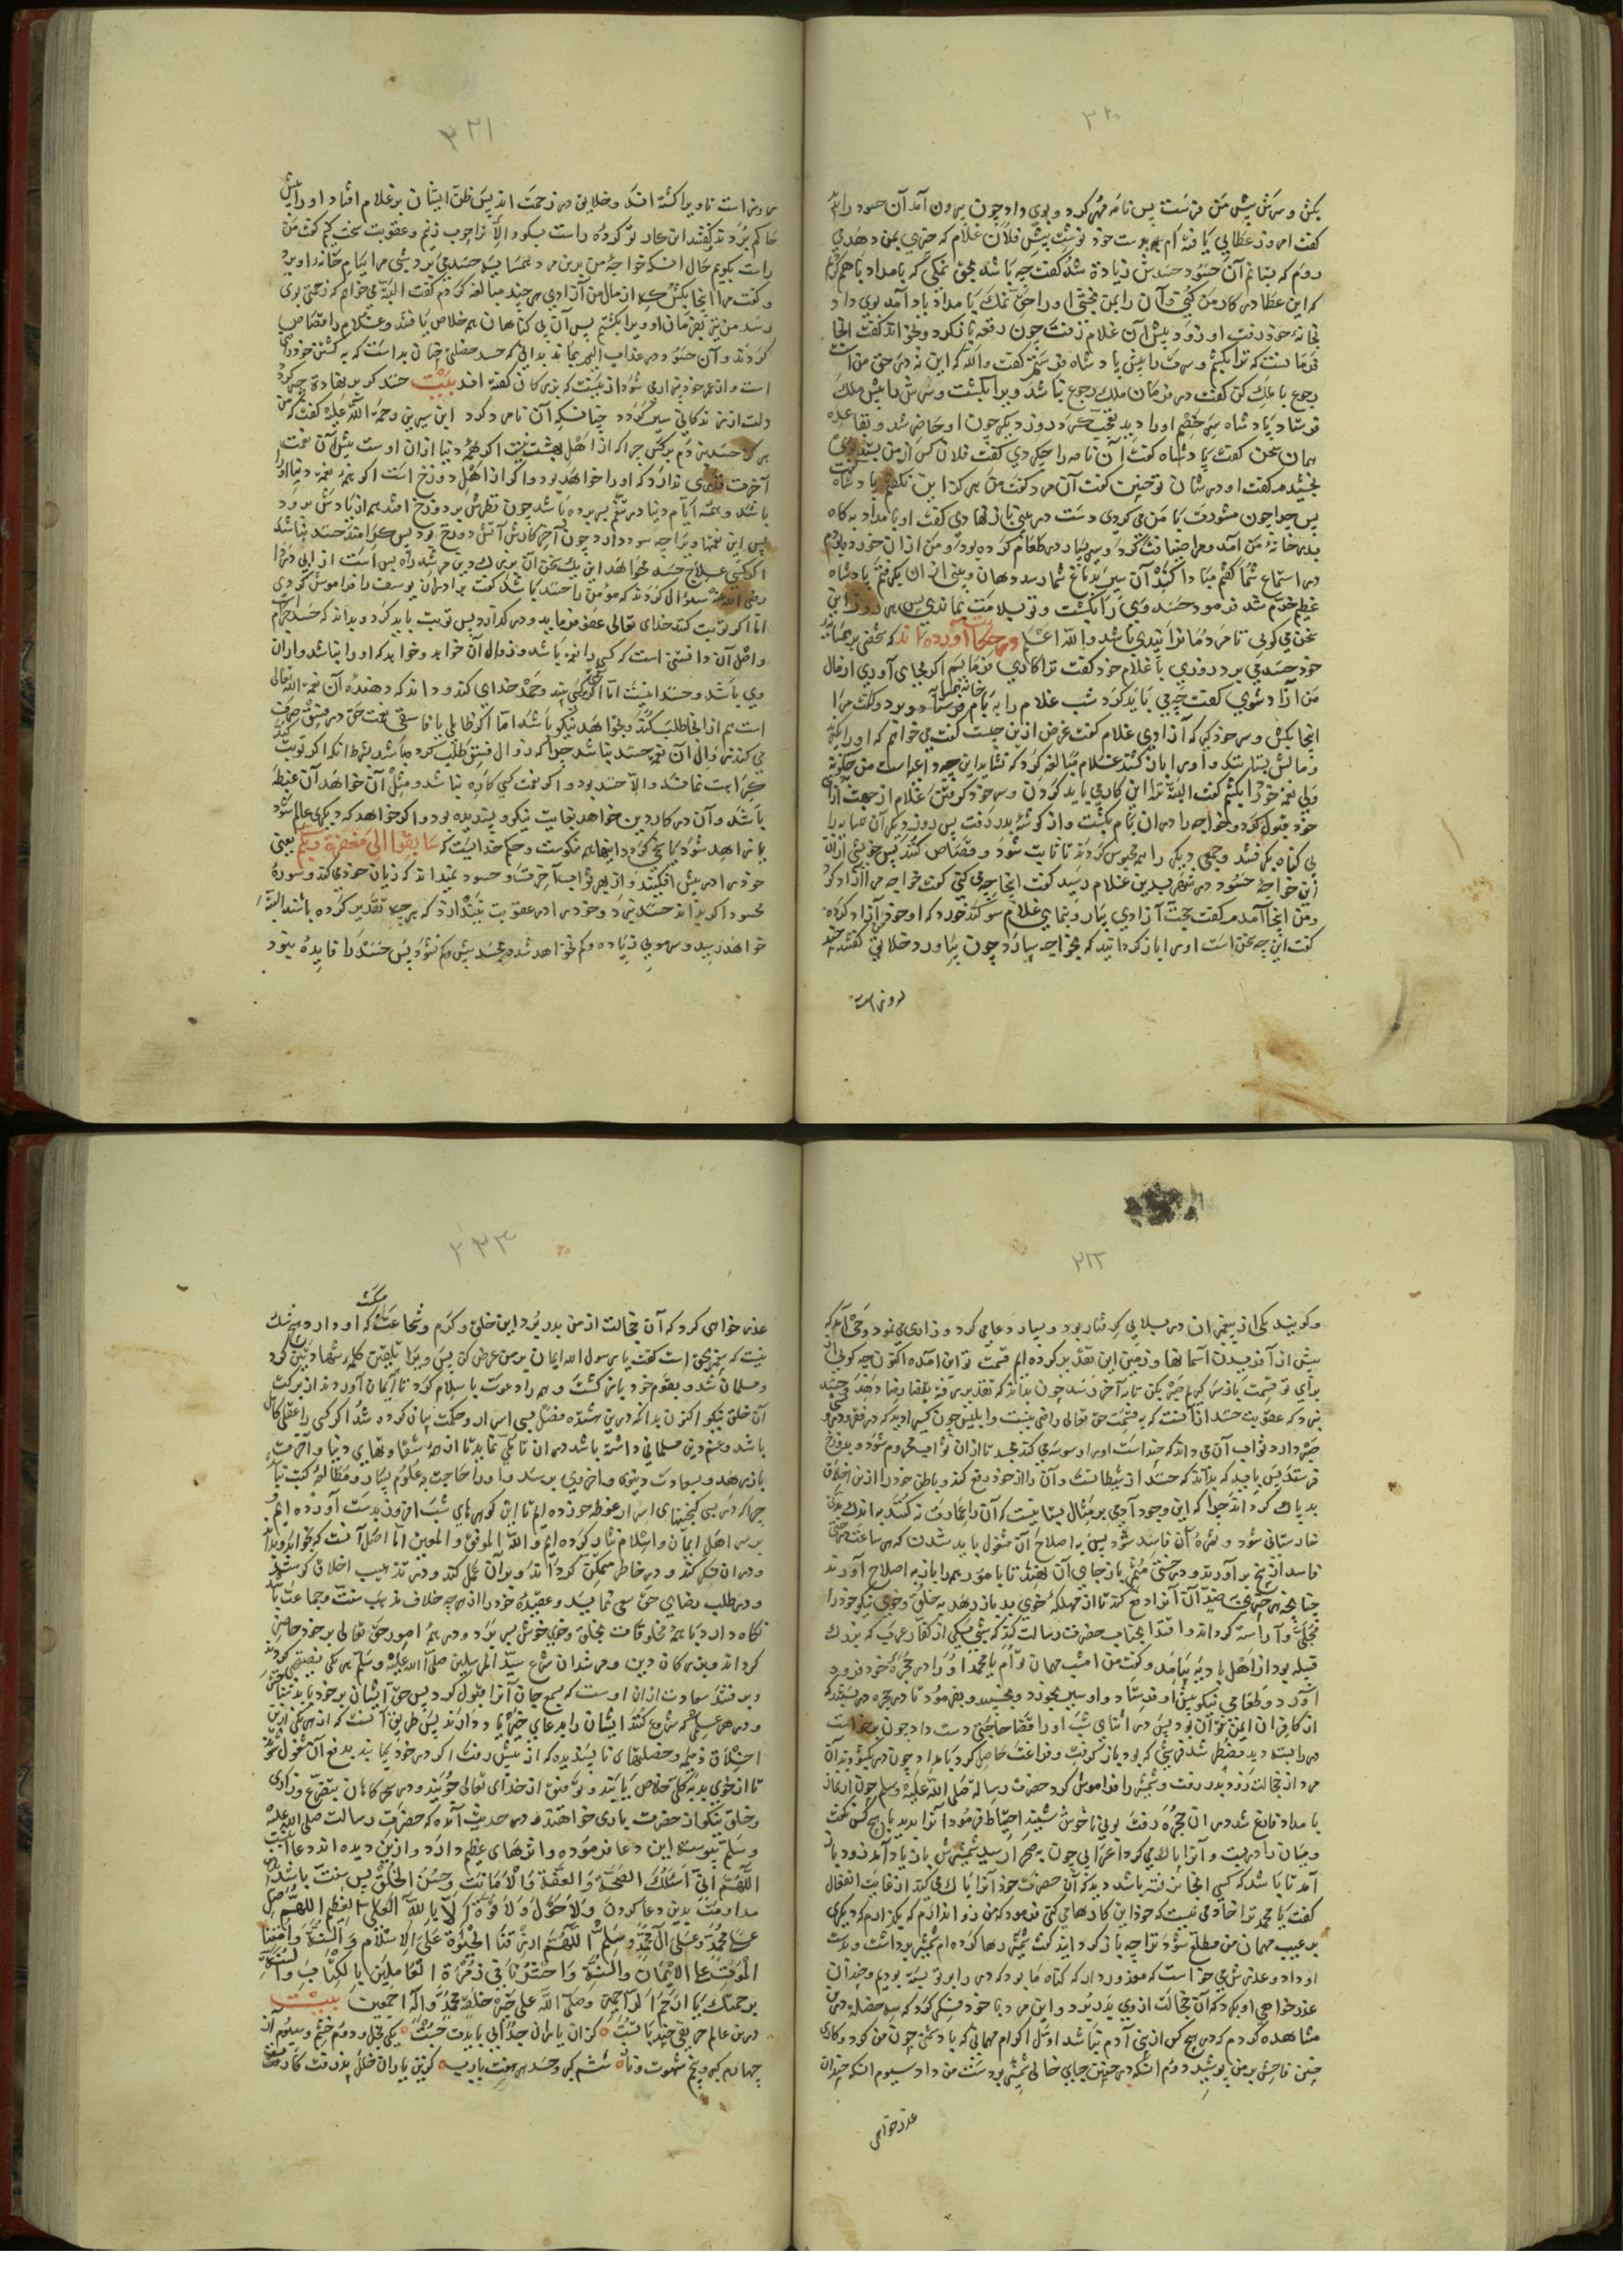 ۳۲۰
بکش و سرش پیش من فرست پس نامه مهر کرد و بوی داد چون بیرون آمد آن حسود را دید
کفت امروز عطایی یافته ام بدست خود نوشت پیش فلان غلام که چیزی بمن دهد می
روم که بستانم آن حسود حسدش زیادة شد کفت چه باشد بحق نمکی که بامداد باهم خوردیم
که این عطا در کار من کنی و آن را بمن بخشی او را حق نمک یاد آمد بوی داد
بخانه خود رفت او زود پیش آن غلام رفت چون رقعه باز کرد و بخواند کفت اینجا
فرمانست که ترا بکشم و سرت را پیش پادشاه فرستم کفت والله که این نه در حق من است
رجوع با ملک کن کفت در فرمان ملک رجوع نباشد ویرا بکشت و سرش را پیش ملک
فرستاد پادشاه او را دید تعجب کرد روز دیکر چون او حاضر شد و بقاعده
همان سخن کفت پادشاه کفت آن نامه را چه کردی کفت فلان کس از من بستد بوی
بخشیدم کفت او در شان تو چنین کفت آن مرد کفت من هرکز این نکفتم پادشاه کفت
پس چرا چون مشورت با من می کردی دست در بینی باز نهادی کفت او بامداد پکاه
بدر خانه من آمد و مرا ضیافت کرد و سیر بسیار در طعام کرده بود و من از آن خورده بودم
در استماع شما کفتم مبادا کند آن سیر بدماغ شما رسد دهان و بینی از آن بکرفتم پادشاه
عظیم خرم شد فرمود حسد وی را بکشت و تو بسلامت بماندی پس هر روز این
سخن می کویی تا مردمانرا پندی باشد والله اعلم در حکایات آورده اند که شخصی بر همسایه
خود حسد می برد روزی با غلام خود کفت ترا کاری فرمایم اکر بجای آوری از مال
من آزاد شوی کفت چه می باید کرد شب غلام را به بام خانه همسایه فروستاد و بود و کفت مرا
اینجا بکش و سر خود کیر که آزادی غلام کفت غرض ازین چیست کفت می خواهم که او را بکیرند
و مالش بستانند و او را باز کشند غلام مبالغه کرد که نشاید این چه داعیه است من چکونه
ولی نعمة خود را بکشم کفت البته ترا این کار می باید کردن و سر خود کرفتن غلام از جهت آزادی
خود قبول کرد و خواجه را در آن بام بکشت و از کوشهٔ بدر رفت پس روز دیکر آن همسایه را
بی کناه بکرفتند و جمعی دیکر را هم محبوس کردند تا ثابت شود و قصاص کنند پس خویشی از آن
این خواجهٔ حسود در شهر بدین غلام رسید کفت اینجا چه می کنی کفت خواجه مرا آزاد کرد
و من اینجا آمدم کفت حجت آزادی بیار و بنمای غلام سوکند خورد که او خود مرا آزاد کرده
کفت این چه سخن است او را باز کردانید که بخواجه سپارد چون بیاورد خلایق کفتند چند
روز است
۳۲۱
روز است تا ویرا کشته اند و خلایق در زحمت اند پس ظن ایشان بر غلام افتاد او را پیش
حاکم بردند کفتند این کار تو کردهٔ راست بکو و الا ترا چوب زنیم و عقوبت سخت کنیم کفت من
راست بکویم حال آنکه خواجهٔ من برین مرد همسایه حسد می برد شبی مرا ببام خانه او برد
و کفت مرا اینجا بکش که از مال من آزادی هر چند مبالغه کردم کفت البته می خواهم که زحمتی بوی
رسد من نیز بفرمان او ویرا بکشتم پس آن بی کناهان هم خلاص یافتند و غلام را قصاص
کردند و آن حسود در عذاب الیم بماند بدانی که حسد خصلتی چنان بد است که به کشتن خود راضی
است و از عمر خود برادری شود از نیست که بزرکان کفته اند بیت حسد کر بر نهادة چیر کردد
دلت از زندکانی سیر کردد چنانکه آن نامرد کرد ابن سیرین رحمة الله علیه کفت که من
هرکز حسد نبردم بر کس چرا که از اهل بهشتست اکر همهٔ دنیا از آن اوست پیش آن نعمت
آخرت قدری ندارد که او را خواهد بود و اکر از اهل دوزخ است اکر نیز نعمة دنیا او را
باشد و همه ایام دنیا در تنعم بسر برده باشد چون نظرش بر دوزخ افتد همه از یادش برود
پس این نعمتها ویرا چه سود دارد چون آخر کارش آتش دوزخ بود پس کرامتر حسد نباشد
اکر کسی علاج حسد خواهد این یک سخن آن بزرک دین مرشد راه بس است از ابی ذر را
رضی الله عنه سوال کردند که مومن را حسد باشد کفت برادران یوسف را فراموش کردی
اما اکر توبت کند خدای تعالی عفو فرماید و درکذارد پس توبت باید کرد و بداند که حسد حرام
و اصل آن دانستن است که کسی را نعمة باشد و زوال آن خواهد و خواهد که او را نباشد و از آن
وی باشد و حسد اینست اما اکر نعمة کسی بیند و حمد خدای کند و داند که دهندهٔ آن نعمة الله تعالی
است هم از آنجا طلب کند و بخواهد نیکو باشد اما اکر ظالمی یا فاسقی نعمت حق در فسق صرف
می کند زوال آن نعمة حسد نباشد چرا که زوال فسق طلب کرده باشد بشرط آنکه اکر توبت کند
کراهیت نماند و الا حسد بود و اکر نعمت کسی کاره نباشد و مثل آن خواهد آن غبطه
باشد و آن در کار دین خواهد بغایت نیکو و پسندیده بود و اکر خواهد که دیکری عالم شود
یا زاهد شود یا سخی کردد اینها هم نکوست و حکم خداییست که سابقوا الی مغفرة من ربکم یعنی
خود را در پیش افکنید و از بهر ثواب آخرت و حسود نمیداند که زیان خود می کند و سودهٔ
محسود اکر بداند حسد نبرد و خود را در عقوبت نیندازد که هر چه تقدیر کرده باشند البته
خواهد رسید و سر مویی زیاده و کم نخواهد شد و بحسد بیش و کم نشود پس حسد را فایدهٔ نبود
۳۲۲
و کویند یکی از پیغمبران در بلایی کرفتار بود و بسیار دعا می کرد و زاری می نمود وحی آمد که
پیش از آفریدن آسمانها و زمین این تقدیر کرده ایم قسمت تو این آمده اکنون چه کویی از
برای تو قسمت باز سر کیرم صبر بکن تا به آخر رسد چون بداند که تقدیر رفته بقضا رضا دهد و حسد
نبرد که عقوبت حسد از آنست که به قسمت حق تعالی راضی نیست و ابلیس چون کسی را دید که در فقر و درد
صبر دارد ثواب آن می داند که چند است او را وسوسه می کند بحسد تا از آن ثواب محروم شود و بدوزخ
فرستد پس باید که بداند که حسد از شیطانست و آن را از خود دفع کند و باطن خود را ازین اخلاق
بد پاک کرداند چرا که این وجود آدمی بر مثال بستانیست که آن را عمارت نکنند به اندک مدتی
خارستانی شود و ثمرهٔ آن فاسد شود پس به اصلاح آن مشغول باید شدن که هر ساعت درختی
فاسد از بیخ بر آورند و درختی مثمر باز جای آن نهند تا بامور هم را باز به اصلاح آورند
چنانچه هر چیزی ضد آن آنرا دفع کند تا از مهلکهٔ خوی بد باز دهد به خلق و خوی نیکو خود را
مجلی و آراسته کرداند و اقتدا بجناب حضرت رسالت کند که شبی یکی از کفار عرب که بزرک
قبیله بود از اهل بادیه بیامد و کفت من امشب مهمان توام یا محمد او را در حجرهٔ خود فرود
آورد و طعامی نیکو پیش او فرستاد و او سیر بخورد و بخسبید و بفرمود تا در حجره در ببستند که
از کافران ایمن نتوان بود پس در اثنای شب او را قضا حاجتی دست داد چون برخاست
در را بسته دید مضطر شد فرشی که بود باز کرفت و فراغت حاصل کرد بامداد چون در بکشودند آن
مرد از خجالت زود بدر رفت و شمشیر را فراموش کرد حضرت رساله صلی الله علیه و سلم چون از نماز
بامداد فارغ شد در آن حجره رفت بویی ناخوش شنید احتیاط فرمود آنرا بدید با هیچ کس نکفت
و میان در بست و آنرا پاک می کرد اعرابی چون به صحرا رسید شمشیرش باز یاد آمد زود باز
آمد تا باشد که کسی اینجا نرفته باشد دید که آن حضرت خود آنرا پاک می کند از غایت انفعال
کفت یا محمد ترا خادمی نیست که خود این کارها می کنی فرمود که من روا ندارم که بکذارم که دیکری
بر عیب مهمان من مطلع شود ترا چه باز کردانید کفت شمشیر رها کرده ام شمشیر برداشت و بدست
او داد و عذرش می خواست که معذور دار که کناه ما بود که در را بر تو بسته بودیم و چندان
عذرخواهی او کرد که آن خجالت از وی بدر برد و این مرد با خود فکر کرد که سه خصله درین
مشاهده کردم که در هیچ کس از بنی آدم نباشد اول اکرام مهمانی که با دشمن چون من کرد و کاری
چنین فاحش بر من بپوشید دوم آنکه در چنین جایی خالی شمشیر بر دست من داد سیوم آنکه چندان
عذرخواهی
۳۲۳
عذرخواهی کرد که آن خجالت از من بدر برد این خلق و کرم و شجاعت که او دارد هیچ شک
نیست که پیغمبر بحق است کفت یا رسول الله ایمان بر من عرض کن پس ویرا تلقین کلمهٔ شهادتین کرد
و مسلمان شد و بقوم خود باز کشت و هم را دعوت باسلام کرد تا ایمان آوردند از برکت
آن خلق نیکو اکنون بدانکه درین هشده فصل بسی اسرار و حکمت بیان کرده شد اکر کسی را عقلی کامل
باشد و غم دین مسلمانی داشته باشد در آن تاملی نماید تا از همهٔ شقاوتهای دنیا و آخرت
باز رهد و بسعادت دنیوی و اخروی برسد و او را حاجت بعلوم بسیار و مطالعهٔ کتب نباشد
چرا که در بسی کنجینهای اسرار غوطه خورده ایم تا این کوهرهای شب افروز بدست آورده ایم و
بر سر اهل ایمان و اسلام نثار کرده ایم والله الموفق و المعین اما اصل آنست که بخواند و بداند
و در آن فکر کند و در خاطر متمکن کرداند و بر آن عمل کند و در تهذیب اخلاق کوشد
و در طلب رضای حق سعی نماید و عقیدهٔ خود را از هر چه خلاف مذهب سنت و جماعت باشد
نکاه دارد با همهٔ مخلوقات بخلق و خوی خوش بسر برد و در همهٔ امور حق تعالی بر خود حاضر
کرداند و بزرکان دین و مرشدان شرع سید المرسلین صلی الله علیه و سلم هر یکی
و بر فتند سعادت از آن اوست که بسمع جان آنرا قبول کرد پس حق ایشان بر خود باید شناختن
و در هر عملی که شروع کند ایشان را بدعای خیر یاد دارند پس طریق آنست که از هر یکی ازین
اخلاق ذمیمه و خصلتهای ناپسندیده که از پیش رفت اکر در خود یابند بدفع آن مشغول شوند
تا از خوی بد بکلی خلاص یابند و توفیق از خدای تعالی جویند و در سحرکاهان بتضرع و زاری
و خلق نیکو از حضرت باری خواهند در حدیث آمده که حضرت رسالت صلی الله علیه
و سلم پیوسته این دعا فرموده و اثرهای عظیم دارد و ازین دیده اند دعا اینست
اللهم انی اسئلک الصحة والعفة والامانت وحسن الخلق پس سنت باشد
مداومت بدین دعا کردن ولا حول ولا قوة الا بالله العلی العظیم اللهم صل
علی محمد وعلی آل محمد وسلم اللهم ارزقنا الحیوة علی الاسلام والسنة
الموت علی الایمان والسنة واحشرنا فی زمرة العاملین بالکتاب والسنة
برحمتک یا ارحم الراحمین وصلی الله علی خیر خلقه محمد وآله اجمعین بیت
درین عالم حریفی چند یابست کزان یاران جدا بی یادت جست یکی بخل و دوم خشم و سیوم آز
چهارم کبر و پنجم شهوت و ناز ششم کین و حسد هر هفت یارند کزین یاران خلل پذرفت کارت